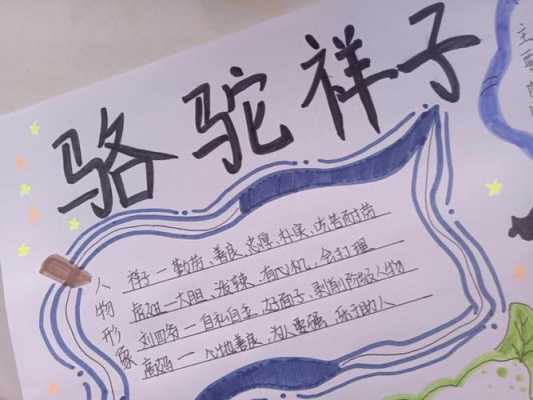 骆驼祥子
人物形象
祥子—勤劳、善良、忠厚、朴实、吃苦耐劳
虎妞—大胆、泼辣、有心机、会打理
刘四爷—自私自金、好面子、剥削阶级人物
高妈—心地善良、为人要强、乐于助人
主